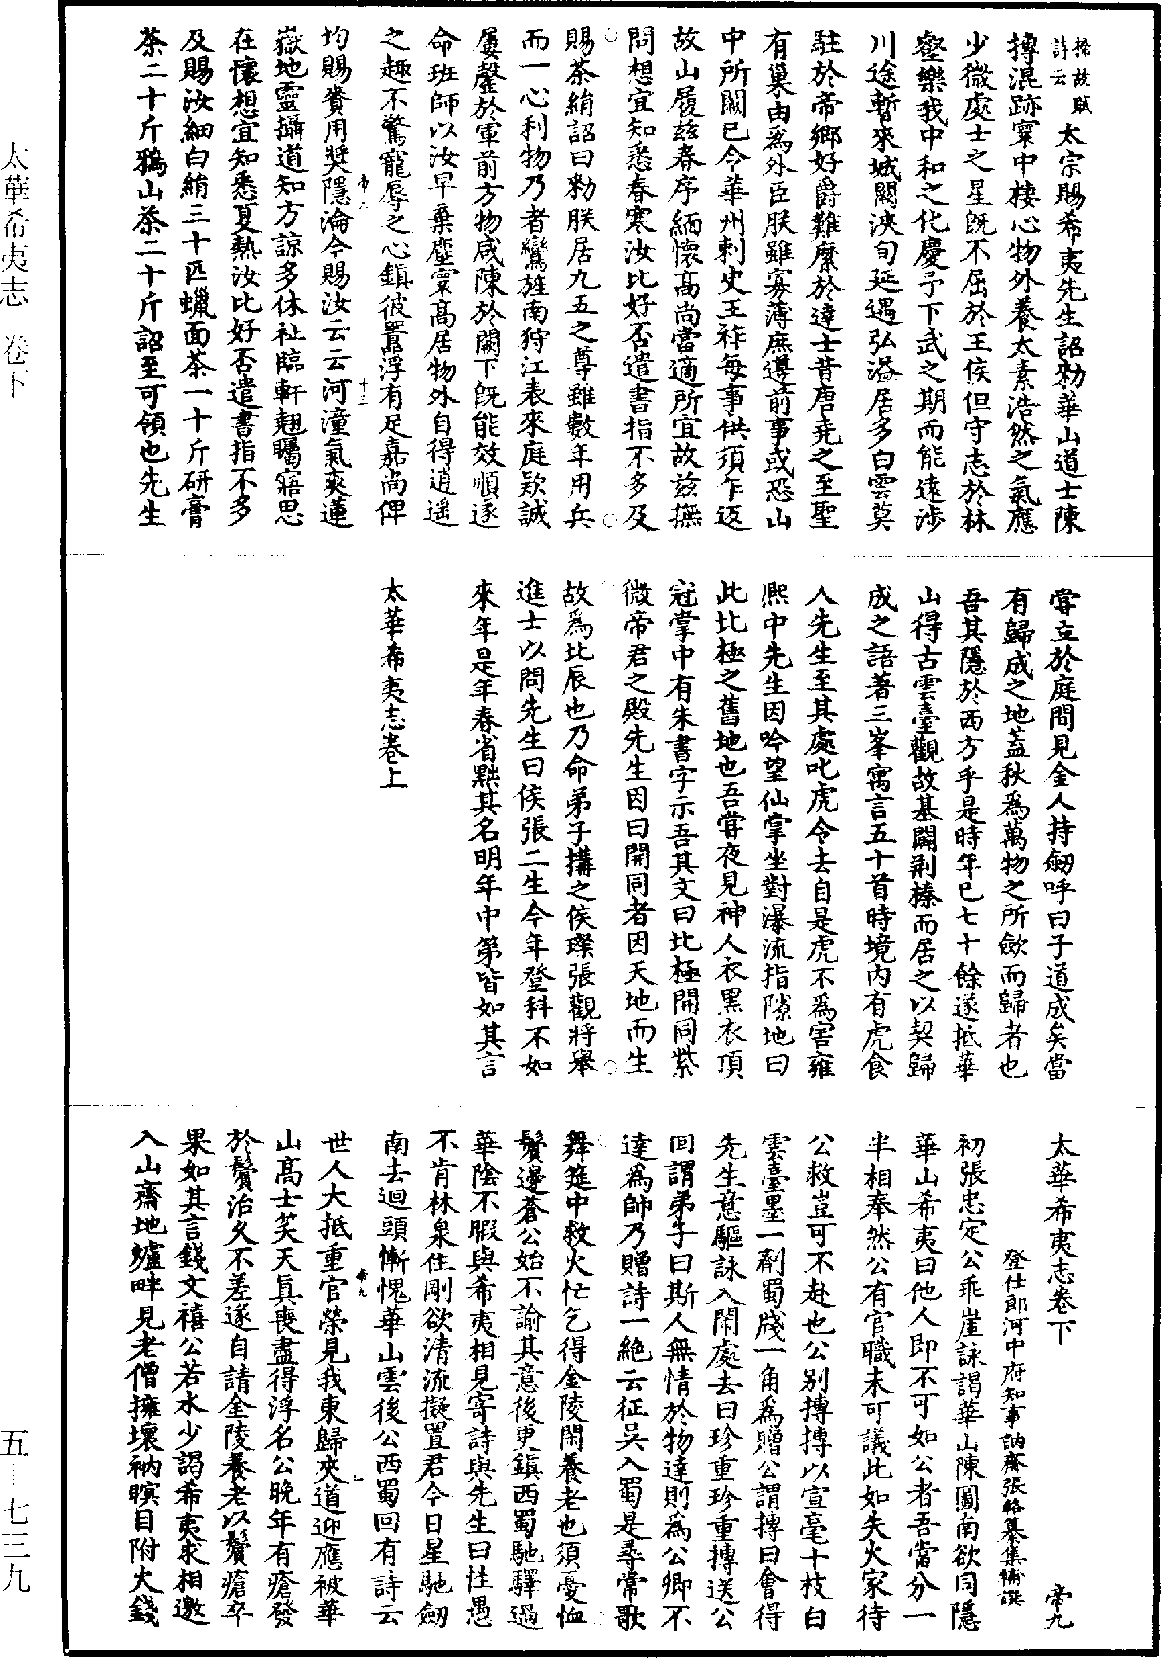 太華希夷志　卷下
五—七三九
捨故賦
詩云
太宗賜希夷先生詔勑華山道士陳
摶混跡寰中棲心物外養太素浩然之氣應
少微處士之星旣不屈於王侯但守志於林
壑樂我中和之化慶予下武之期而能遠涉
川途暫來城闕浹旬延遇弘溢居多白雲莫
駐於帝鄉好爵難縻於達士昔唐堯之至聖
有巢由爲外臣朕雖寡薄庶遵前事或恐山
中所闕已令華州刺史王祚每事供須乍返
故山履兹春序緬懷高尚當適所宜故兹撫
問想宜知悉春寒汝比好否遣書指不多及
賜茶絹詔曰勑朕居九五之尊雖數年用兵
而一心利物乃者鸞旌南狩江表來庭欵誠
屢罄於軍前方物咸陳於闕下旣能效順遂
命班師以汝早棄塵寰高居物外自得逍遥
之趣不驚寵辱之心鎮彼囂浮有足嘉尚俾
均賜賚用奬隱淪今賜汝云云河潼氣爽蓮
嶽地靈攝道知方諒多休祉臨軒翹矚寤思
在懷想宜知悉夏熱汝比好否遣書指不多
及賜汝細白絹三十匹蠟面茶一十斤研膏
茶二十斤鵶山茶二十斤詔至可領也先生
嘗立於庭間見金人持劒呼曰子道成矣當
有歸成之地蓋秋爲萬物之所歛而歸者也
吾其隱於西方乎是時年已七十餘遂抵華
山得古雲臺觀故基闢荆榛而居之以契歸
成之語著三峯寓言五十首時境内有虎食
人先生至其處叱虎令去自是虎不爲害雍
熙中先生因吟望仙掌坐對瀑流指隙地曰
此比極之舊地也吾嘗夜見神人衣黑衣頂
冠掌中有朱書字示吾其文曰比極開同紫
微帝君之殿先生因曰開同者因天地而生
故爲比辰也乃命弟子搆之侯璨張觀將舉
進士以問先生曰侯張二生今年登科不如
來年是年春省黜其名明年中第皆如其言
太華希夷志卷上
太華希夷志卷下
帝九
登仕郎河中府知事訥齋張輅纂集補譔
初張忠定公乖崖詠謁華山陳圖南欲同隱
華山希夷曰他人即不可如公者吾當分一
半相奉然公有官職未可議此如失火家待
公救豈可不赴也公别摶摶以宣毫十枝白
雲臺墨一劑蜀牋一角爲贈公謂摶曰會得
先生意驅詠入鬧處去曰珍重珍重摶送公
回謂弟子曰斯人無情於物達則爲公卿不
達爲師乃贈詩一絶云征吳入蜀是尋常歌
舞筵中救火忙乞得金陵閑養老也須憂恤
鬢邊蒼公始不諭其意後更鎮西蜀馳驛過
華陰不暇與希夷相見寄詩與先生曰性愚
不肯林泉住剛欲清流擬置君今日星馳劒
南去迴頭慚愧華山雲後公西蜀回有詩云
世人大抵重官榮見我東歸夾道迎應被華
山高士笑天眞喪盡得浮名公晚年有瘡發
於鬢治久不差遂自請金陵養老以鬢瘡卒
果如其言錢文禧公若水少謁希夷求相邀
入山齋地爐畔見老僧擁壞衲瞑目附火錢